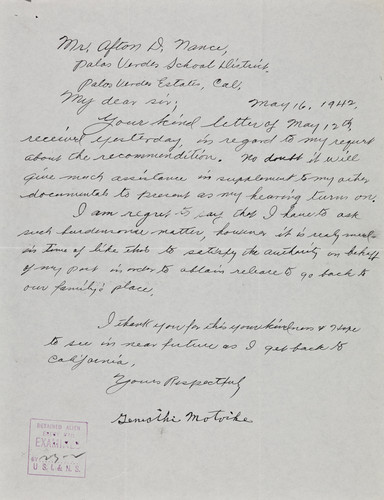 Mr. Afton D. Nance,
Palos Verdes School District.
Palos Verdes Estates, Cal.
My dear sir; May 16, 1942.
Your kind letter of May 12th,
received yesterday, in regard to my request
about the recommendition. No doubt it will
give much assistance in supplement to my other
documental to present as my hearing turns on.
I am regret to say that I have to ask
such burdensome matter, however it is realy
in time of like this to satisfy the authority on behalf
of my part in order to obtain release to go back to
our family's place.
I thank you for this your kindness & Hope
to see in near future as I get back to
California.
Yours Respectfuly
Genichi Motoike
DETAINED ALIEN
EXAMINED
BY
U.S.I.&N.S.